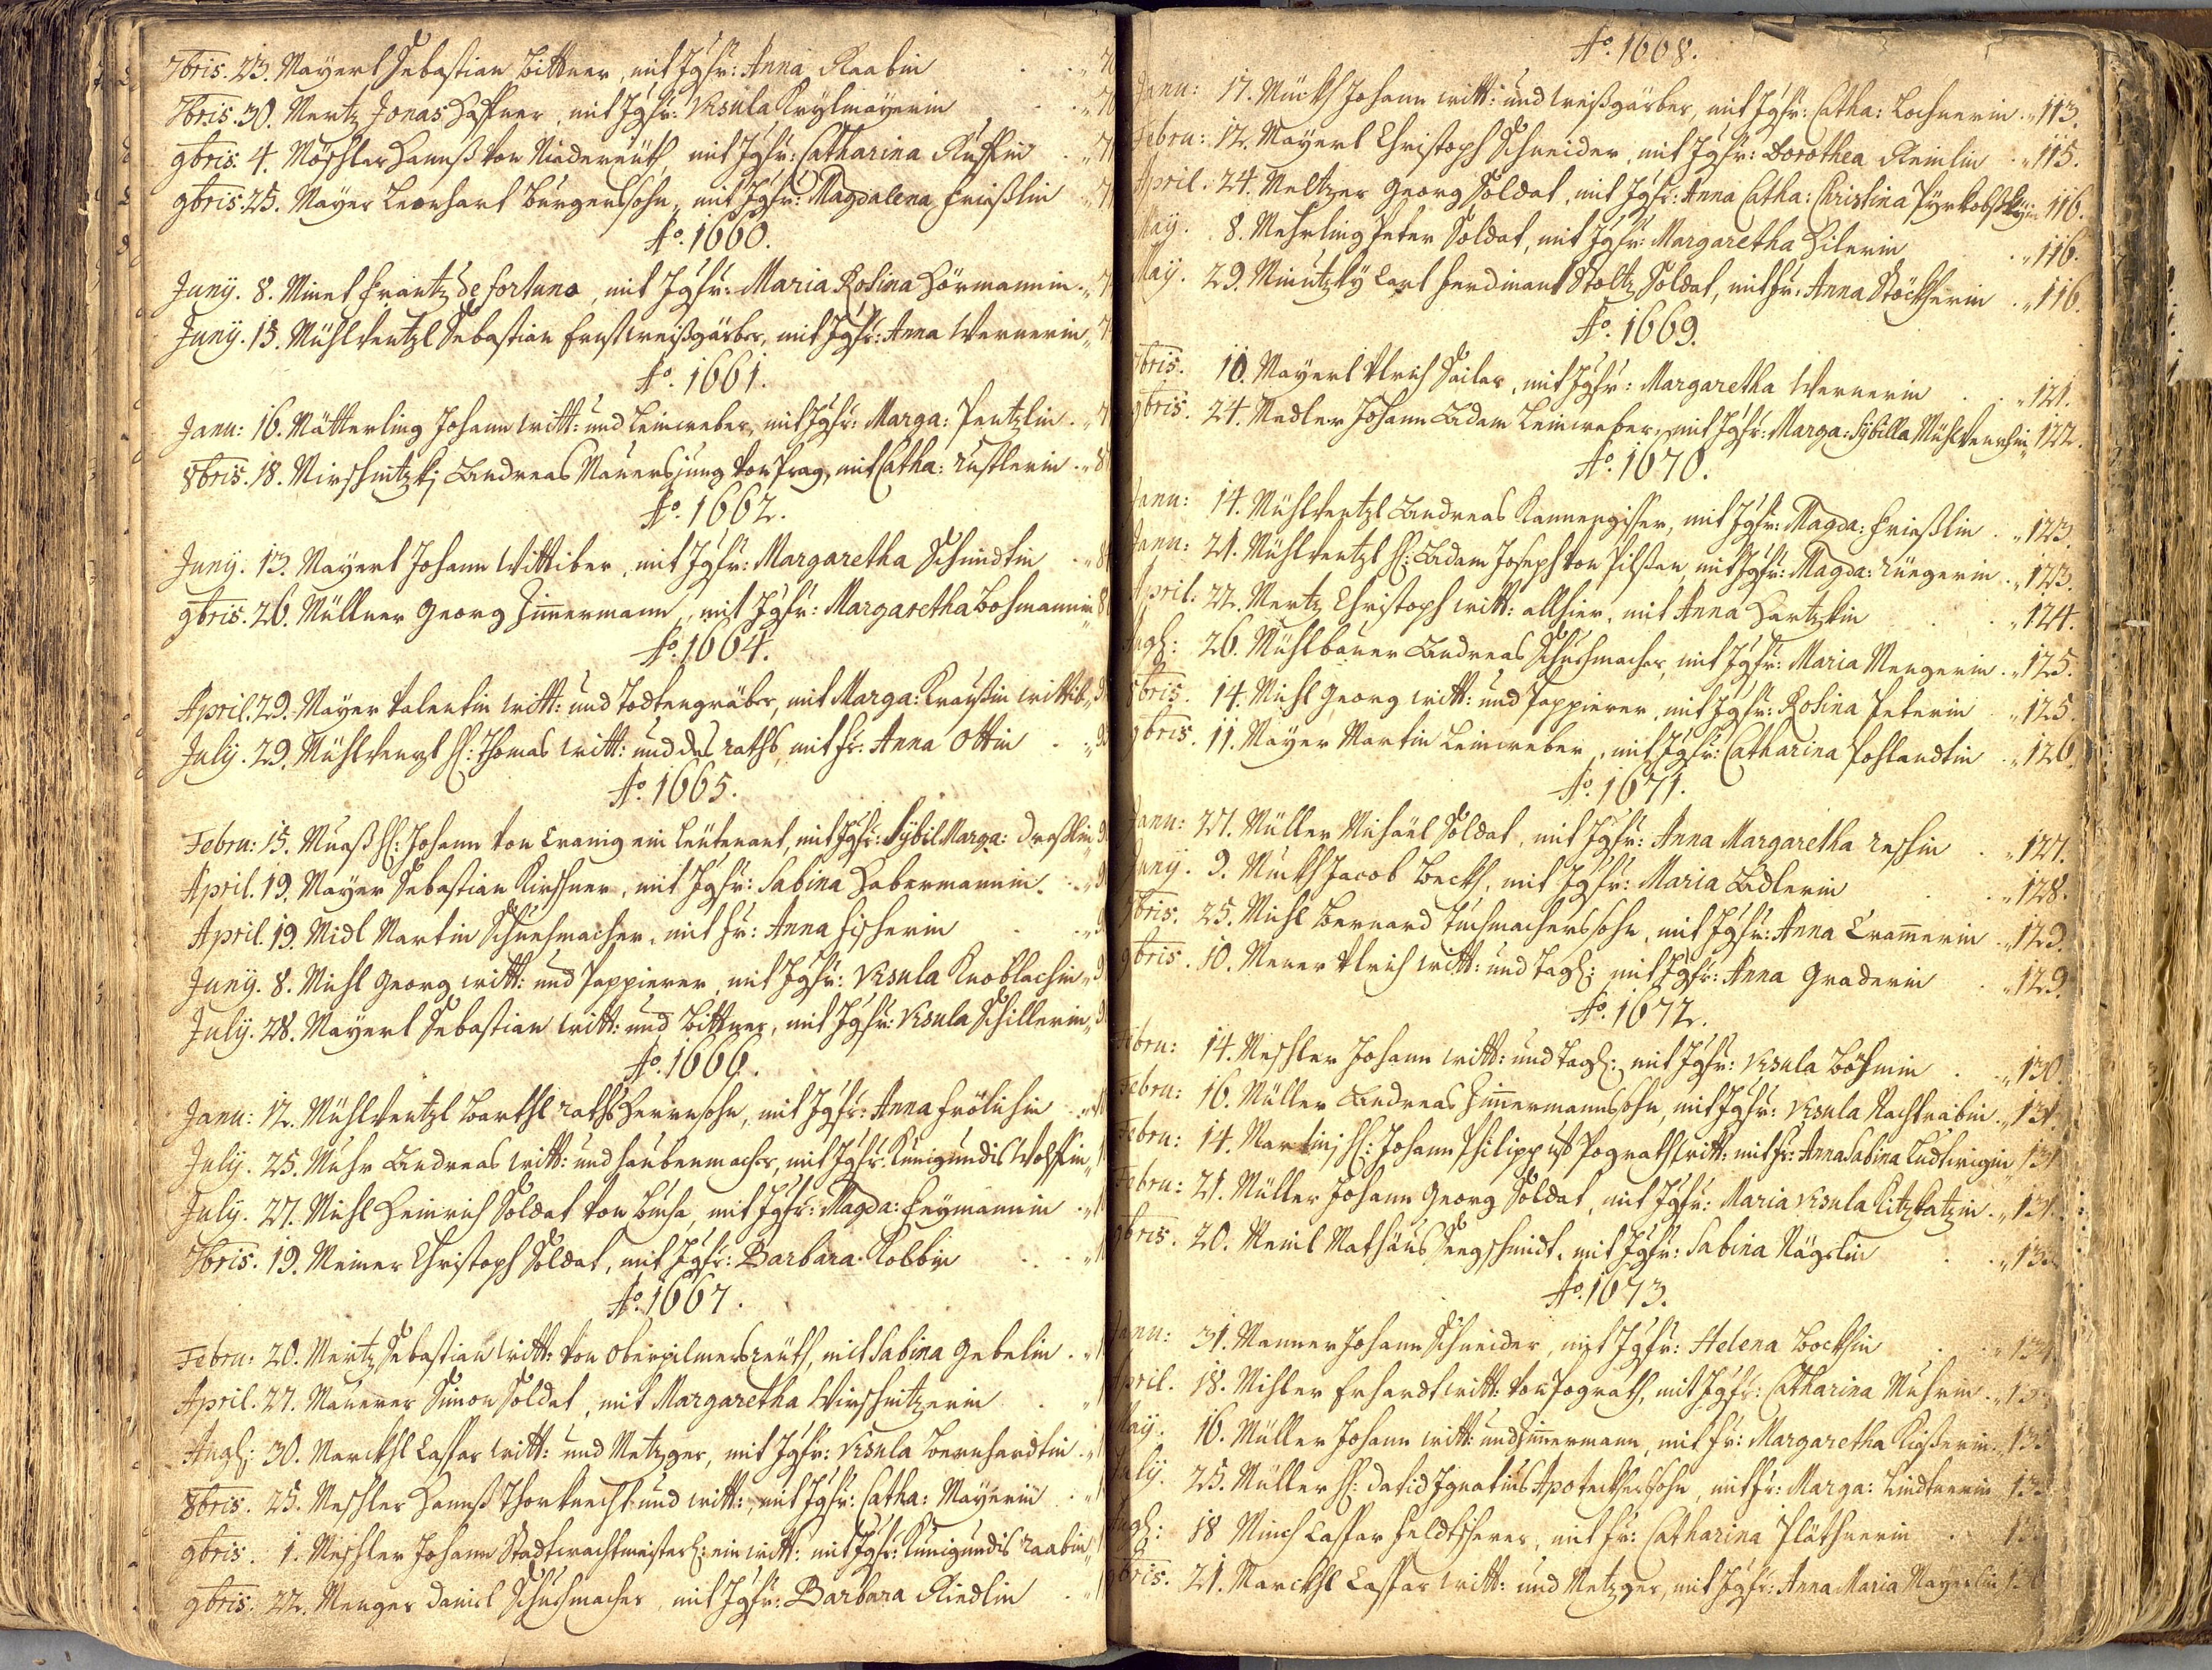 7bris. 23. Mayerl Sebastian Bittner, mit Jgfr: Anna Raabin
7bris. 30. Mertz Jonas Haffner, mit Jgfr: Vrsula Krylmayerin
9bris. 4. Möschler Hannß von Niedereüth, mit Jgfr: Catharina
9bris. 25. Mayer Leonhart Burgerssohn, mit Jgfr: Magdalena Frießlin
Aō. 1660.
Juny. 8. Minet Frantz de fortuna, mit Jgfr: Maria Rosina Hörmannin.
Juny. 13. Mühlventzl Sebastian Ernst weißgärber, mit Jgfr: Anna Wernerin
Aō. 1661.
Janu: 16. Mätterling Johann witt: und Leinweber, mit Jgfr: Marga: Pentzlin.
8bris. 18. Mirschnitzkj Andreas Maurersjung von Prag, mit Catha: Rustlerin.
Aō. 1662.
Juny. 13. Mayerl Johann Wittiber, mit Jgfr: Margaretha Schmidtin
9bris. 26. Müllner Georg Zimmermann, mit Jgfr: Margaretha Bohmannin
Aō. 1664.
April. 29. Mayer Valentin witt: und Todtengräber, mit Marga: Kraußin wittib
July. 29. Mühlventzl H: Thomas witt: und des raths, mit Fr: Anna Ottin
Aō. 1665.
Febru: 15. H: Johann von Cranig ein Leütenant, mit Jgfr: Sybil Marga:
April. 19. Mayer Sebastian Kirschner, mit Jgfr: Sabina Habermannin.
April. 19. Midl Martin Schuehmacher, mit Fr: Anna Fischerin
Juny. 8. Michl Georg witt: und Pappierer, mit Jgfr: Vrsula Knoblachin
July. 28. Mayerl Sebastian witt: und Bittner, mit Jgfr: Vrsula Schillerin
Aō. 1666.
Janu: 12. Mühlventzl Barthl raths Herrnsohn, mit Jgfr: Anna Frölichin
July. 25. Muhr Andreas witt: und haubenmacher, mit Jgfr: Kunigundis Wolffin
July. 27. Michl Heinrich Soldat von Bucha, mit Jgfr: Magda: Heymannin
7bris. 19. Meiner Christoph Soldat, mit Jgfr: Barbara Kobbin
Aō. 1667.
Febru: 20. Mertz Sebastian witt: von Oberpilmersreüth, mit Sabina Gebelin.
April. 27. Maurer Simon Soldat, mit Margaretha Wirschnitzerin
Aug: 30. Marckhl Caspar witt: und Metzger, mit Jgfr: Vrsula Bernhardtin.
8bris. 25. Meschler Hannß Thorknecht und witt:, mit Jgfr: Catha: Mayerin
9bris. 1. Meschler Johann Stadtwachtmeister: ein witt: mit Jgfr: Kunigundis Raabin
9bris. 22. Menger Daniel Schuchmacher, mit Jgfr: Barbara Riedlin
Aō. 1668.
Janu: 17. Mückh Johann witt: und weißgärber, mit Jgfr: Catha: Lochnerin. 113.
Febru: 12. Mayerl Christoph Schneider, mit Jgfr: Dorothea Reinlin 115.
April. 24. Meltzer Georg Soldat, mit Jgfr: Anna Catha: Christina 116.
May. 8. Mehrling Peter Soldat, mit Jgfr: Margaretha Hilerin 116.
May. 29. Minutzky Carl Ferdinant Stoltz Soldat, mit Fr: Anna Stöckherin 116.
Aō. 1669.
7bris. 10. Mayerl Vlrich Sailer, mit Jgfr: Margaretha Wernerin 121.
9bris. 24. Medler Johann Adam Leinweber, mit Jgfr: Marga: Sybilla 122.
Aō. 1670.
Janu: 14. Mühlventzl Andreas Kannengisser, mit Jgfr: Magda: Frießlin. 123.
Janu: 21. Mühlventzl H: Adam Joseph von Pilßen, mit Jgfr: Magda: Rüngerin. 123.
April. 22. Mertz Christoph witt: allhier, mit Anna Hartzkin 124.
Aug: 26. Mühlbauer Andreas Schuchmacher, mit Jgfr: Maria Mengerin. 125.
8bris. 14. Michl Georg witt: und Pappierer, mit Jgfr: Rosina Peterin 125.
9bris. 11. Mayer Martin Leinweber, mit Jgfr: Catharina Pohlandtin 126.
Aō. 1671.
Janu: 27. Müller Michäel Soldat, mit Jgfr: Anna Margaretha 127.
Juny. 9. Mückh Jacob Beckh, mit Jgfr: Maria Adlerin 128.
7bris. 25. Michl Bernard Tuchmacherssohn, mit Jgfr: Anna Cramerin 129.
9bris. 10. Mener Vlrich witt: und Tagl: mit Jgfr: Anna Graderin 129.
Aō. 1672.
Febru: 14. Meschler Johann witt: und Tagl: mit Jgfr: Vrsula Böhmin 130.
Febru: 16. Müller Andreas Zimmermannssohn, mit Jgfr: Vrsula Nachtrabin. 131.
Febru: 14. Martinj H: Johann Philipp Pograth witt: mit Fr: Anna Sabina Ludtwigin 131
Febru: 21. Müller Johann Georg Soldat, mit Jgfr: Maria Vrsula Kitzkatzin. 131.
9bris. 20. Meinl Mathäus Sengschmidt, mit Jgfr: Sabina Nägelin 13
Aō. 1673.
Janu: 31. Manner Johann Schneider, mit Jgfr: Helena Beckhin 134
April. 18. Mihler Erhardt witt: von Pograth, mit Jgfr: Catharina Muhrin. 13
May. 16. Müller Johann witt: und Zimmermann, mit Fr: Margaretha Kißerin. 13
July. 25. Müller H: David Ignatius Apoteckherssohn, mit Fr: Marga: Lindtnerin 13
Aug: 18 Minch Caspar Feldtscherer, mit Fr: Catharina Pläthnerin 13
9bris. 21. Marckhl Caspar witt: und Metzger, mit Jgfr: Anna Maria Mayerlin 13